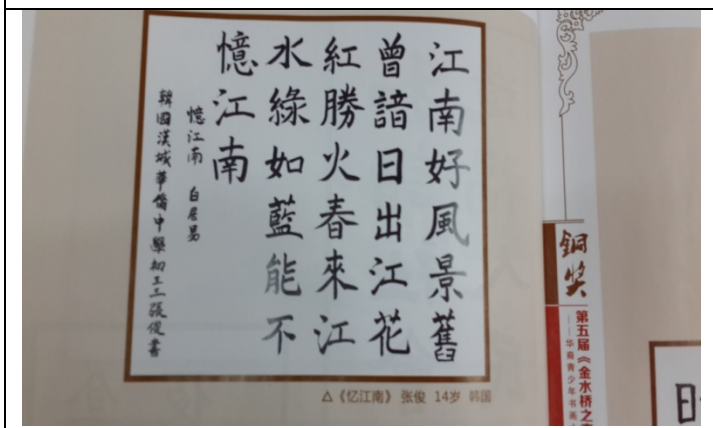 江南好風景舊
曾諳日出江花
紅勝火春來江
水綠如藍能不
憶江南
憶江南 白居易
韓國漢城華僑中學初三張俊書
△《忆江南》 张俊 14岁 韩国
銅奖
第五届《金水桥之
——华裔青少年书画